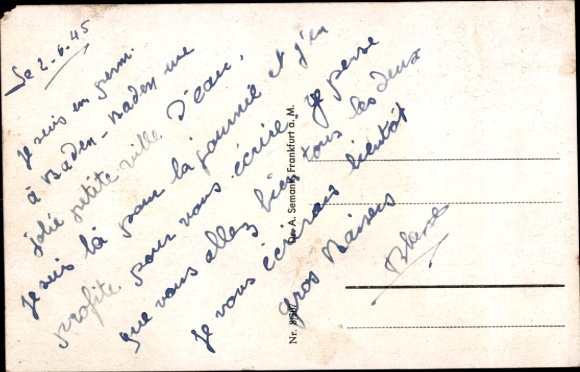 Le 2-6-45
Je suis en perm.
à Baden-Baden une
jolie petite ville d'eau,
Je suis là pour la journée et j'en
profite pour vous écrire. Je pense
que vous allez bien tous les deux
je vous écrirais bientôt
Gros Baisers
Nr.
A. Semank, Frankfurt a. M.